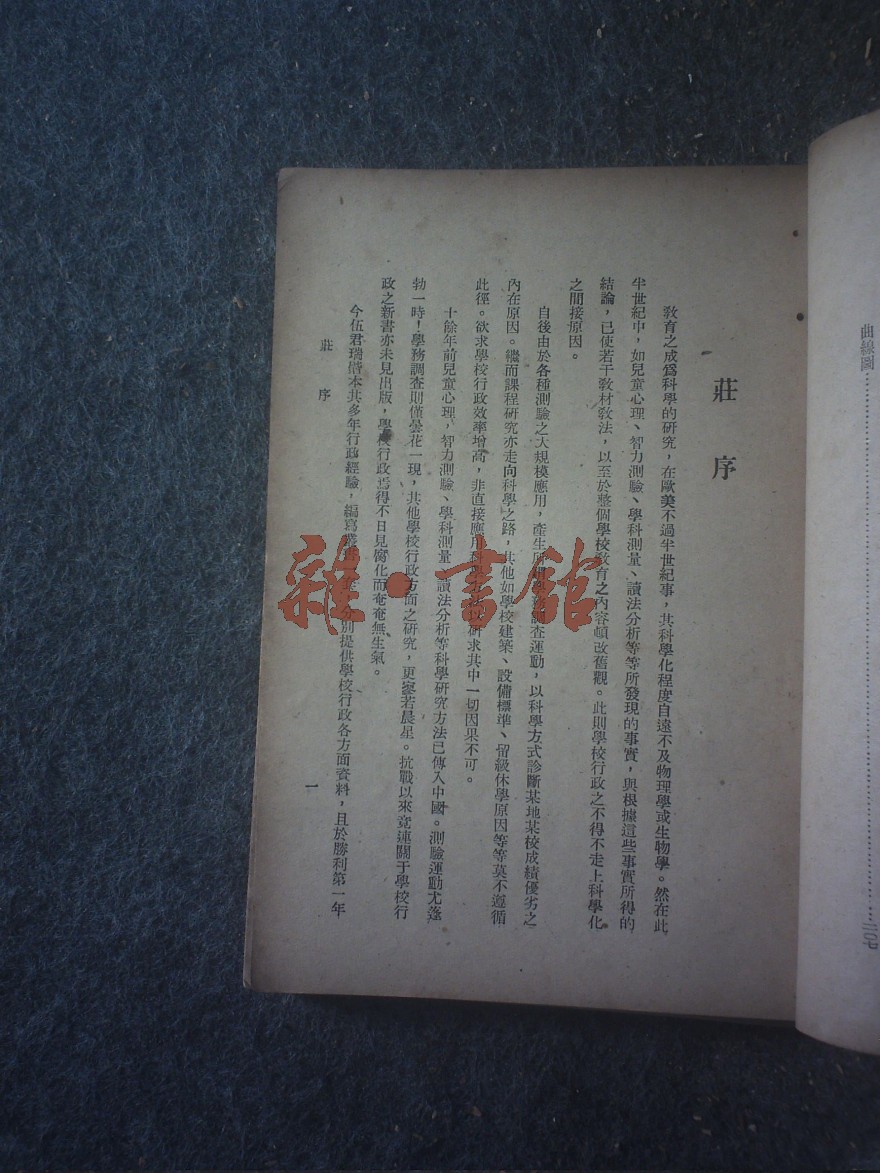 曲線圖…………………二〇七
莊序
教育之成爲科學的研究，在歐美不過半世紀事，其科學化程度自遠不及物理學或生物學。然在此
半世紀中，如兒童心理、智力測驗、學科測量、讀法分析等等所發現的事實，與根據這些事實所得的
結論，已使若干教材敎法，以至於整個學校敎育之內容頓改舊觀。此則學校行政之不得不走上科學化
之間接原因。
自後由於各種測驗之大規模應用，產生所謂學務調查運動，以科學方式診斷某地某校成績優劣之
內在原因。繼而課程研究亦走向科學之路，其他如學校建築、設備標準、留級休學原因等等莫不遵循
此徑。欲求學校行政效率增高，非直接應用科學以研求其中一切因果不可。
十餘年前兒童心理，智力測驗、學科測量、讀法分析等科學研究方法已傳入中國。測驗運動尤蓬
勃一時！學務調查則僅曇花一現，其他學校行政方面之研究，更寥若晨星。抗戰以來竟連關于學校行
政之新書亦未見出版，學校行政焉得不日見腐化而奄奄無生氣。
今伍君瑞楷本其多年行政經驗，編寫叢書別提供學校行政各方面資料，且於勝利第一年
莊序
一
雜·書館